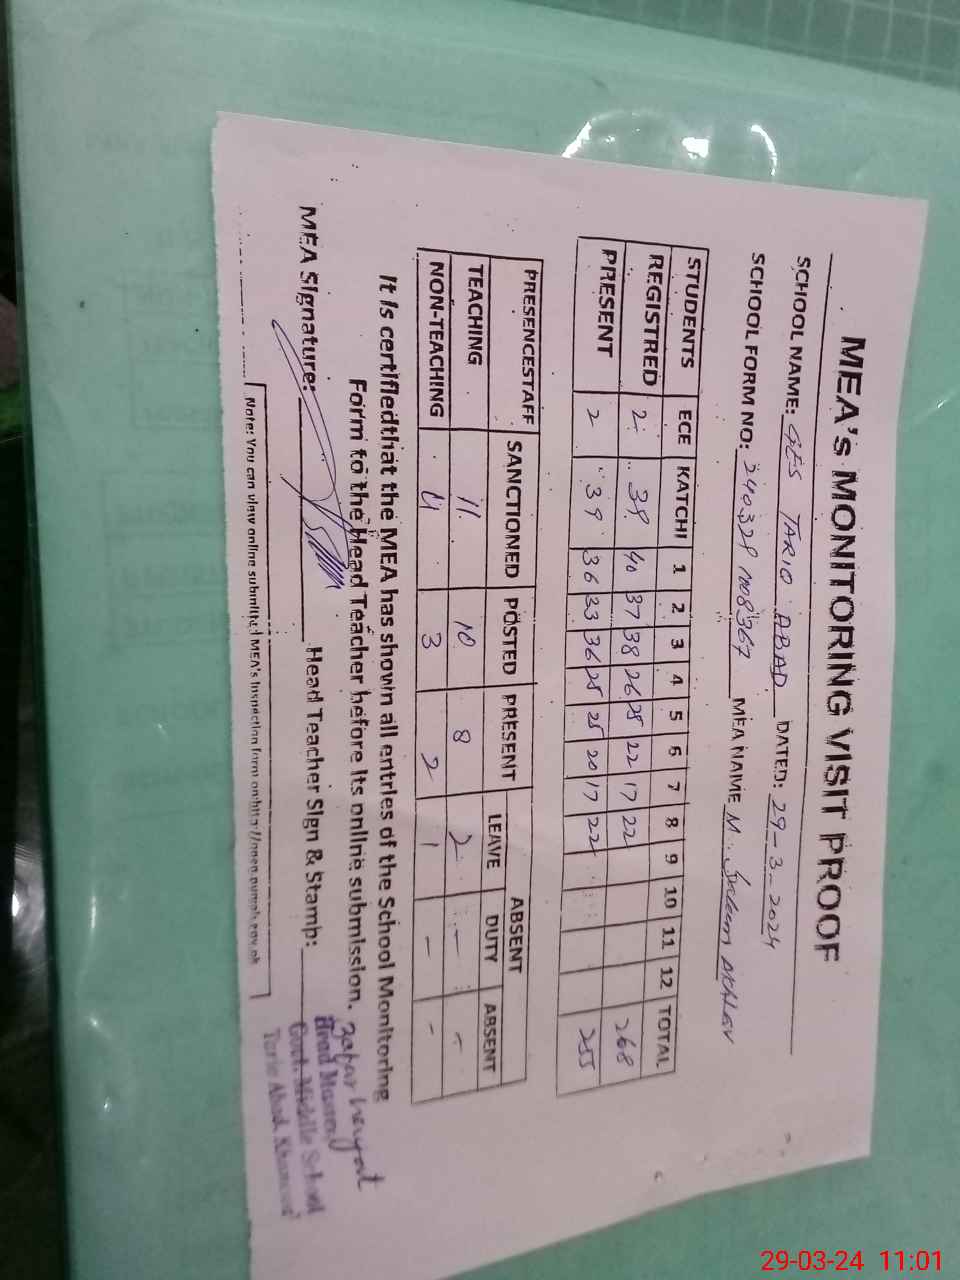 MEA's MONITORING VISIT PROOF
SCHOOL NAME: GES TARIQ ABAD DATED: 29-3-2024
SCHOOL FORM NO: MEA NAME M. Saleem Akhtar
STUDENTS ECE KATCHI 1 2 3 4 5 6 7 8 9 10 11 12 TOTAL
REGISTRED 2 39 40 37 38 26 25 22 17 22 268
PRESENT 2 39 36 33 36 25 25 20 17 22 255
PRESENCESTAFF SANCTIONED POSTED PRESENT ABSENT
LEAVE DUTY ABSENT
TEACHING 11 10 8 2 - -
NON-TEACHING 4 3 2 1 - -
It is certifiedthat the MEA has shown all entries of the School Monitoring
Form to the Head Teacher before its online submission.
MEA Signature: Head Teacher Sign & Stamp:
Zafar Hayat
Head Master
Govt. Middle School
Tariq Abad,
Note: You can view online submitted MEA's Inspection form on
29-03-24 11:01